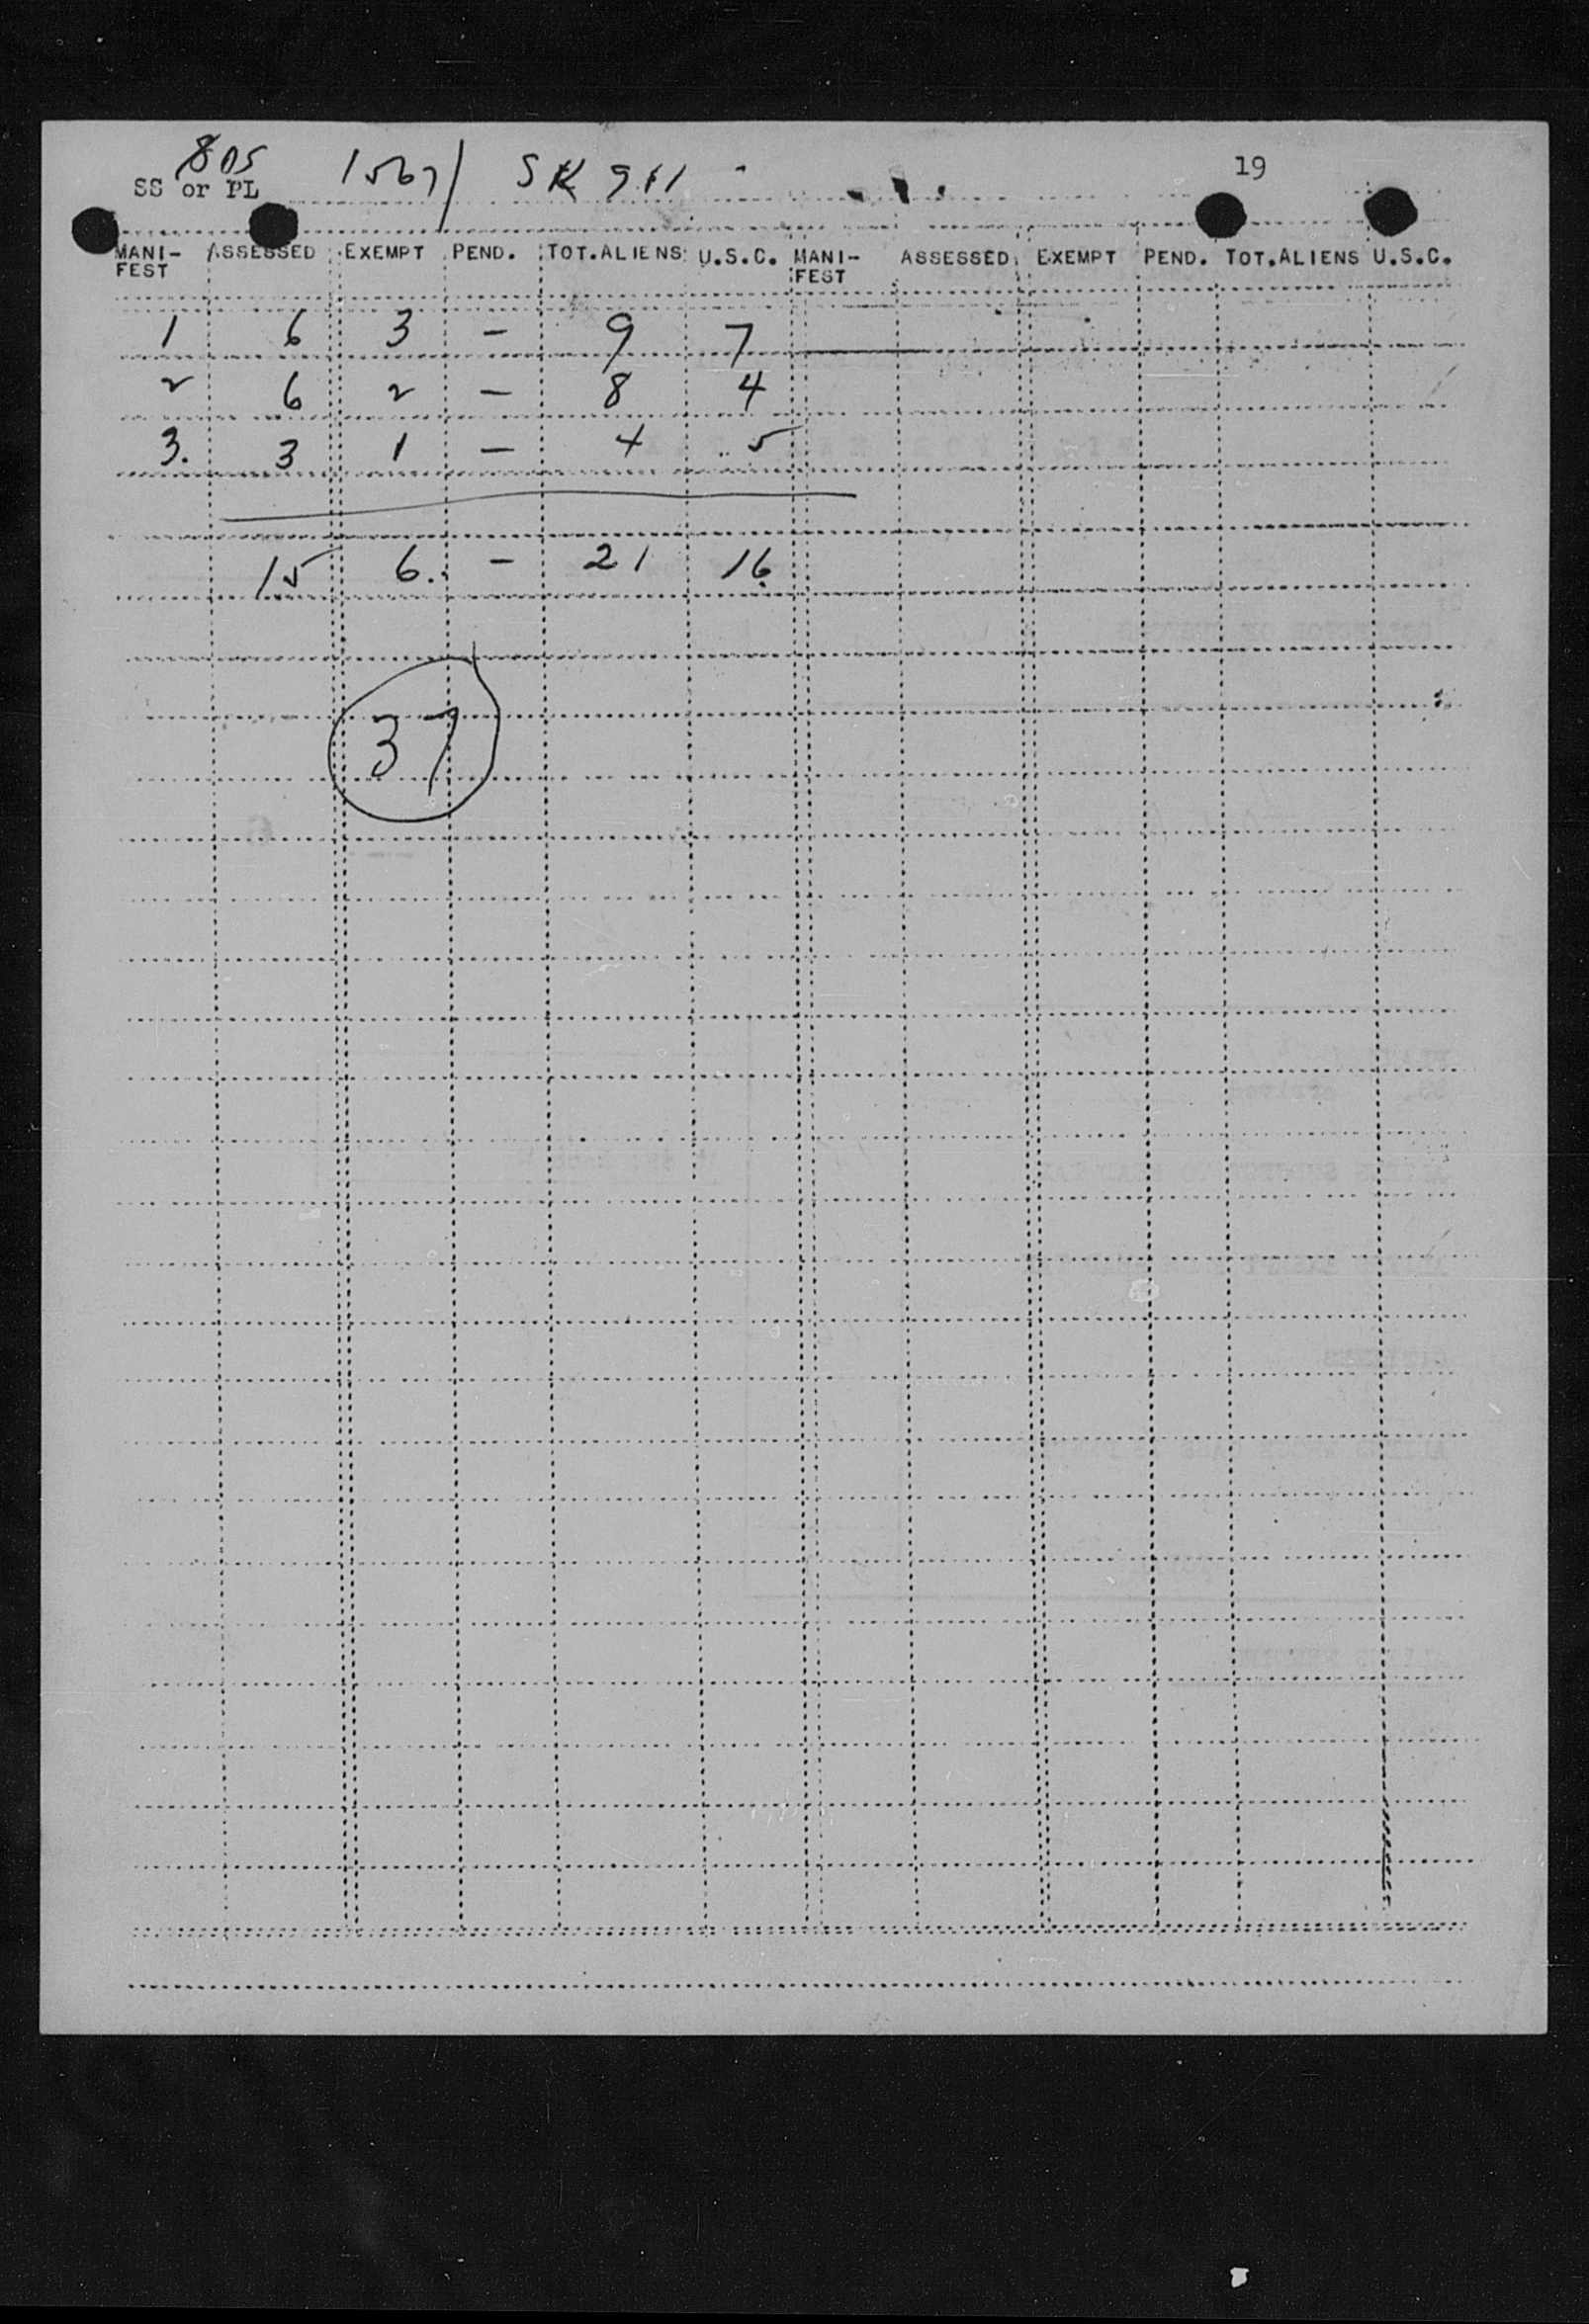 805
SS or PL 1567/ SK 911 - 19
MANI-FEST ASSESSED EXEMPT PEND. TOT.ALIENS U.S.C. MANI-FEST ASSESSED EXEMPT PEND. TOT.ALIENS U.S.C.
1 6 3 - 9 7
2 6 2 - 8 4
3. 3 1 - 4 5
15 6. - 21 16
37